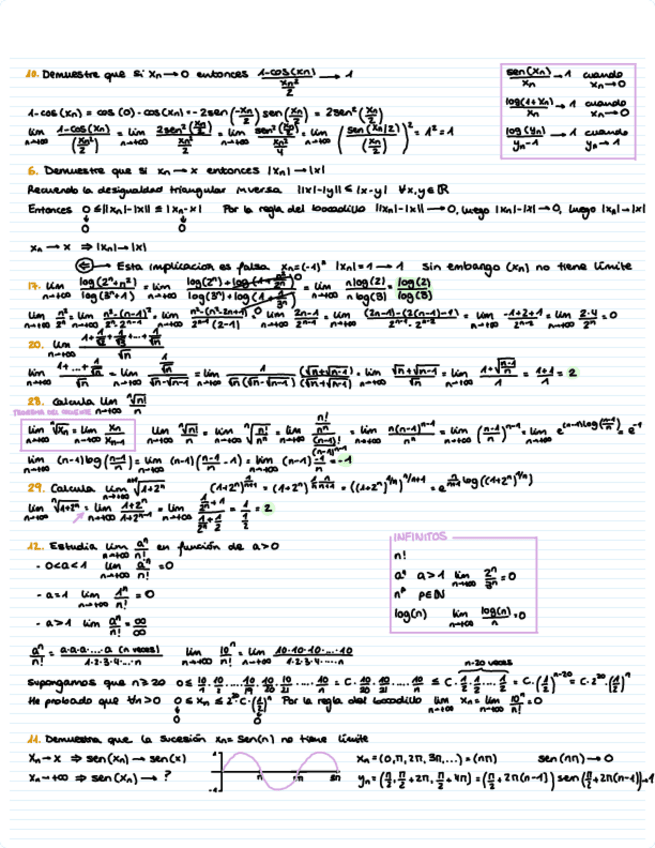 10. Demuestre que si xn → 0 entonces (1-cos(xn))/(xn²/2) → 1
sen(xn)/xn → 1 cuando xn → 0
log(1+xn)/xn → 1 cuando xn → 0
log(yn)/(yn-1) → 1 cuando yn → 1
1-cos(xn) = cos(0)-cos(xn) = -2sen(-xn/2) sen(xn/2) = 2sen²(xn/2)
lim n→+∞ (1-cos(xn))/(xn²/2) = lim n→+∞ 2sen²(xn/2)/(xn²/2) = lim n→+∞ sen²(xn/2)/(xn²/4) = lim n→+∞ (sen(xn/2)/(xn/2))² = 1² = 1
6. Demuestre que si xn → x entonces |xn| → |x|
Recuerdo la desigualdad triangular inversa ||x|-|y|| ≤ |x-y| ∀x,y∈ℝ
Entonces 0 ≤ ||xn|-|x|| ≤ |xn-x| Por la regla del bocadillo ||xn|-|x|| → 0, luego |xn|-|x| → 0, luego |xn| → |x|
0 0
xn → x ⇒ |xn| → |x|
⇐ Esta implicacion es falsa xn=(-1)ⁿ |xn|=1 → 1 Sin embargo (xn) no tiene límite
17. lim n→+∞ log(2ⁿ+n²)/log(3ⁿ+1) = lim n→+∞ (log(2ⁿ)+log(1+n²/2ⁿ))/(log(3ⁿ)+log(1+1/3ⁿ)) = lim n→+∞ nlog(2)/nlog(3) = log(2)/log(3)
lim n→+∞ n²/2ⁿ = lim n→+∞ (n²-(n-1)²)/(2ⁿ-2ⁿ⁻¹) = lim n→+∞ (n²-(n²-2n+1))/(2ⁿ⁻¹(2-1)) = lim n→+∞ (2n-1)/2ⁿ⁻¹ = lim n→+∞ ((2n-1)-(2(n-1)-1))/(2ⁿ⁻¹-2ⁿ⁻²) = lim n→+∞ (-1+2+1)/2ⁿ⁻² = lim n→+∞ 2·4/2ⁿ = 0
20. lim n→+∞ (1+1/√2+1/√3+...+1/√n)/√n
lim n→+∞ (1+...+1/√n)/√n = lim n→+∞ (1/√n)/(√n-√n-1) = lim n→+∞ 1/(√n(√n-√n-1)) · (√n+√n-1)/(√n+√n-1) = lim n→+∞ (√n+√n-1)/√n = lim n→+∞ (1+√(n-1)/n)/1 = (1+1)/1 = 2
28. Calcula lim n→+∞ ⁿ√n!/n
TEOREMA DEL COCIENTE
lim n→+∞ ⁿ√xn = lim n→+∞ xn/xn-1
lim n→+∞ ⁿ√n!/n = lim n→+∞ ⁿ√(n!/nⁿ) = lim n→+∞ (n!/nⁿ)/((n-1)!/(n-1)ⁿ⁻¹) = lim n→+∞ n(n-1)ⁿ⁻¹/nⁿ = lim n→+∞ ((n-1)/n)ⁿ⁻¹ = lim n→+∞ e^((n-1)log((n-1)/n)) = e⁻¹
lim n→+∞ (n-1)log((n-1)/n) = lim n→+∞ (n-1)((n-1)/n -1) = lim n→+∞ (n-1)·-1/n = -1
29. Calcula lim n→+∞ ⁿ⁺¹√1+2ⁿ (1+2ⁿ)^(1/(n+1)) = (1+2ⁿ)^(1/n·n/(n+1)) = ((1+2ⁿ)^(1/n))^(n/(n+1)) = e^(n/(n+1) log((1+2ⁿ)^(1/n)))
lim n→+∞ ⁿ√1+2ⁿ = lim n→+∞ (1+2ⁿ)/(1+2ⁿ⁻¹) = lim n→+∞ (1/2ⁿ+1)/(1/2ⁿ+1/2) = 1/(1/2) = 2
12. Estudia lim n→+∞ aⁿ/n! en función de a>0
- 0<a<1 lim n→+∞ aⁿ/n! = 0
- a=1 lim n→+∞ 1ⁿ/n! = 0
- a>1 lim aⁿ/n! = ∞/∞
INFINITOS
n!
aⁿ a>1 lim n→+∞ 2ⁿ/3ⁿ = 0
nᵖ p∈ℕ
log(n) lim n→+∞ log(n)/n = 0
aⁿ/n! = a·a·a·...·a (n veces)/1·2·3·4·...·n lim n→+∞ 10ⁿ/n! = lim n→+∞ 10·10·10·...·10/1·2·3·4·...·n
n-20 veces
Supongamos que n≥20 0 ≤ 10/1·10/2·10/3·...·10/19·10/20·10/21·...·10/n = C·10/20·10/21·...·10/n ≤ C·1/2·1/2·...·1/2 = C·(1/2)ⁿ⁻²⁰ = C·2²⁰·(1/2)ⁿ
He probado que ∀n>0 0 ≤ xn ≤ 2²⁰·C·(1/2)ⁿ Por la regla del bocadillo lim n→+∞ xn = lim n→+∞ 10ⁿ/n! = 0
0 0
11. Demuestra que la sucesión xn = sen(n) no tiene límite
xn → x ⇒ sen(xn) → sen(x)
xn → +∞ ⇒ sen(xn) → ?
1
-1
π 2π 3π
xn = (0, π, 2π, 3π, ...) = (nπ) sen(nπ) → 0
yn = (π/2, π/2+2π, π/2+4π) = (π/2+2π(n-1)) sen(π/2+2π(n-1)) → 1